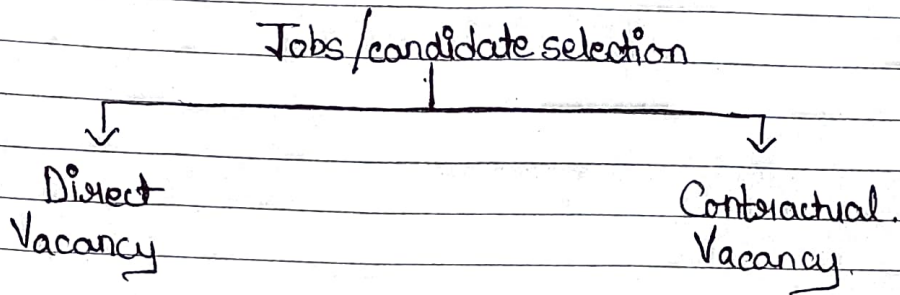 Jobs/candidate selection
Direct
Vacancy
Contractual.
Vacancy.